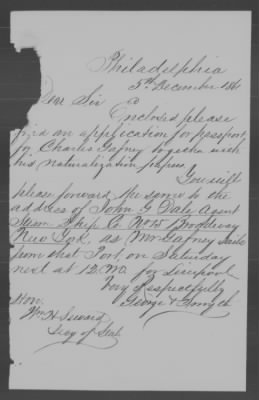 Philadelphia
5th December 1861
Dear Sir
Enclosed please
find an application for passport
for Charles Gafney together with
his naturalization papers
You will
please forward the same to the
address of John G Dale Agent
Steam Ship Co No 15 Broadway
New York, as Mr Gafney sails
from that Port, on Saturday
next at 12 M. for Liverpool
Very Respectfully
George
Hon.
Wm H Seward
Secy of State